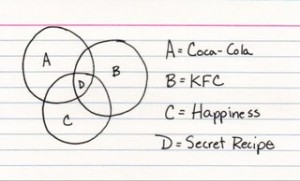 A
B
D
C
A = Coca-Cola
B = KFC
C = Happiness
D = Secret Recipe